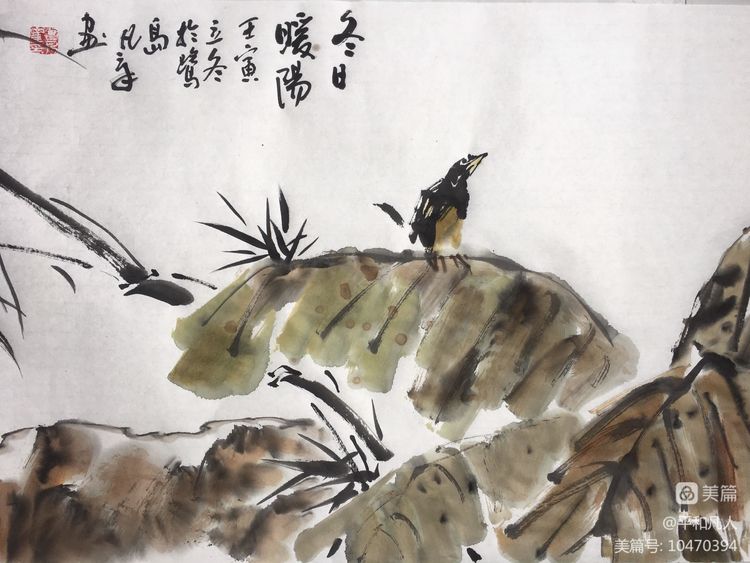 冬日
暖陽
壬寅
立冬
於鷺
島
凡辛
画
美篇
@平和凡人
美篇号: 10470394